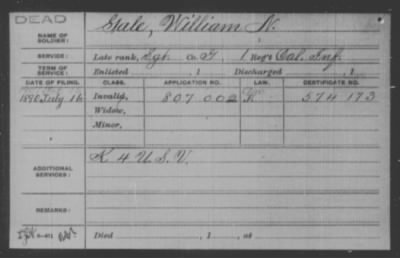 DEAD
NAME OF SOLDIER: Gale, William N.
SERVICE: Late rank, Sgt. Co. G, 1 Reg't Cal. Inf.
TERM OF SERVICE: Enlisted , 1 Discharged , 1
DATE OF FILING. CLASS. APPLICATION NO. LAW. CERTIFICATE NO.
1890 July 16 Invalid, 807 002 K 574 173
Widow,
Minor,
ADDITIONAL SERVICES: K 4 U.S.V.
REMARKS:
Died , 1 , at